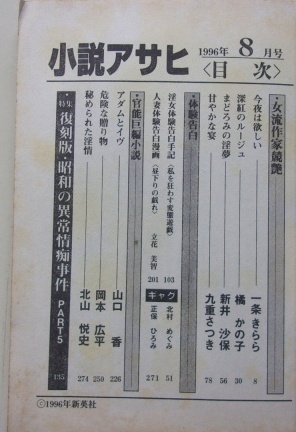 小説アサヒ
1996年8月号
〈目次〉
・女流作家競艶
今夜は欲しい 一条きらら 8
深紅のルージュ 橘かの子 30
まどろみの淫夢 新井沙保 56
甘やかな宴 九重さつき 78
・体験告白
淫女体験告白手記〈私を狂わす変態遊戯〉 103
人妻体験告白漫画〈昼下りの戯れ〉 立花美智 201
ギャグ
北村めぐみ 51
正保ひろみ 271
・官能巨編小説
アダムとイヴ 山口香 226
危険な贈り物 岡本広平 250
秘められた淫情 北山悦史 274
特集 復刻版・昭和の異常情痴事件 PART5
©1996年新英社